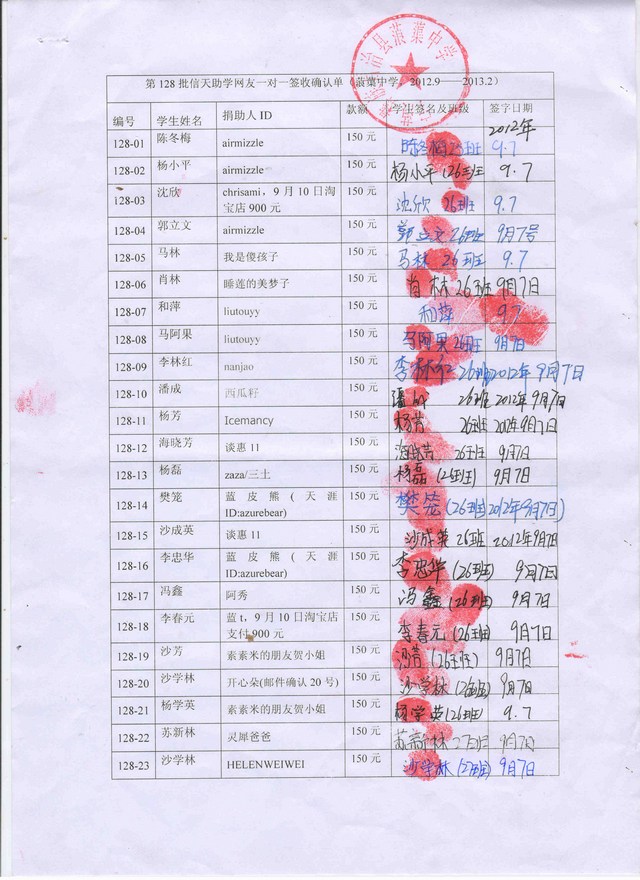 治县蒗蕖中学
第 128 批信天助学网友一对一签收确认单（蒗蕖中学，2012.9——2013.2）
编号 学生姓名 捐助人 ID 款额 学生签名及班级 签字日期
2012年
128-01 陈冬梅 airmizzle 150 元 陈冬梅 26班 9.7
128-02 杨小平 airmizzle 150 元 杨小平 (26班 9.7
128-03 沈欣 chrisami，9 月 10 日淘 150 元 沈欣 26班 9.7
宝店 900 元
128-04 郭立文 airmizzle 150 元 郭立文 26班 9月7号
128-05 马林 我是傻孩子 150 元 马林 26班 9.7
128-06 肖林 睡莲的美梦子 150 元 肖林 26班 9月7日
128-07 和萍 liutouyy 150 元 和萍 9.7
128-08 马阿果 liutouyy 150 元 马阿果 26班 9月7日
128-09 李林红 nanjao 150 元 李林红 26班 2012年9月7日
128-10 潘成 西瓜籽 150 元 潘成 26班 2012年9月7日
128-11 杨芳 Icemancy 150 元 杨芳 26班 2012年9月7日
128-12 海晓芳 谈惠 11 150 元 海晓芳 26班 9月7日
128-13 杨磊 zaza/三土 150 元 杨磊 (26班) 9月7日
128-14 樊笼 蓝 皮 熊 ( 天 涯 150 元 樊笼 (26班 2012年9月7日)
ID:azurebear)
128-15 沙成英 谈惠 11 150 元 沙成英 26班 2012年9月7日
128-16 李忠华 蓝 皮 熊 ( 天 涯 150 元 李忠华 (26班) 9月7日
ID:azurebear)
128-17 冯鑫 阿秀 150 元 冯鑫 (26班) 9月7日
128-18 李春元 蓝 t，9 月 10 日淘宝店 150 元 李春元 (26班) 9月7日
支付 900 元
128-19 沙芳 素素米的朋友贺小姐 150 元 沙芳 (26班) 9月7日
128-20 沙学林 开心朵(邮件确认 20 号) 150 元 沙学林 9月7日
128-21 杨学英 素素米的朋友贺小姐 150 元 杨学英 (26班) 9.7
128-22 苏新林 灵犀爸爸 150 元 苏新林 9月7日
128-23 沙学林 HELENWEIWEI 150 元 沙学林 9月7日